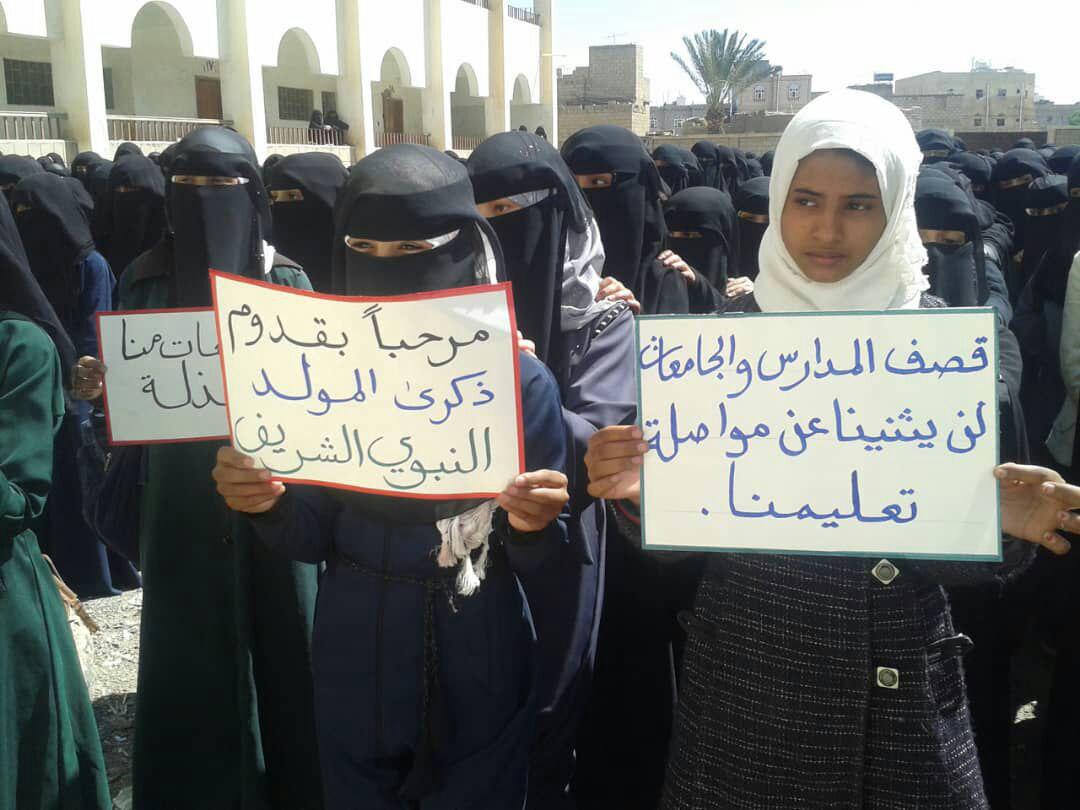 قصف المدارس والجامعات
لن يثنينا عن مواصلة
تعليمنا.
مرحباً بقدوم
ذكرى المولد
النبوي الشريف
منا
ذلة